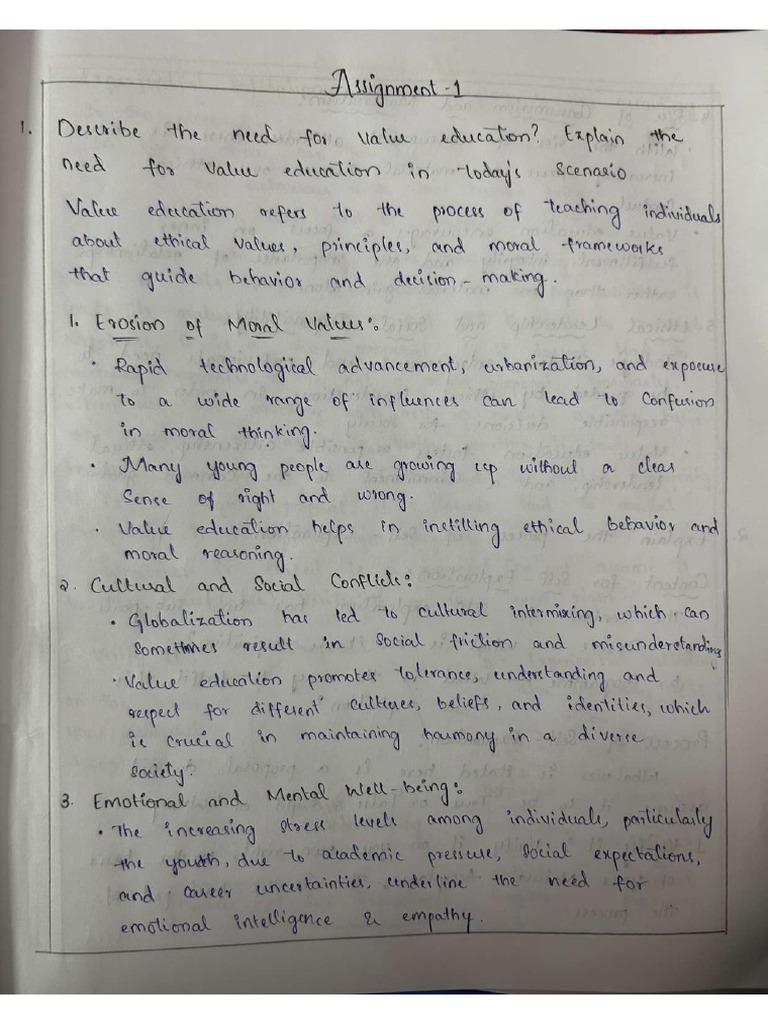 Assignment-1
1. Describe the need for value education? Explain the
need for value education in today's scenario
Value education refers to the process of teaching individuals
about ethical values, principles, and moral frameworks
that guide behavior and decision-making.
1. Erosion of Moral Values:
• Rapid technological advancement, urbanization, and exposure
to a wide range of influences can lead to confusion
in moral thinking.
• Many young people are growing up without a clear
sense of right and wrong.
• Value education helps in instilling ethical behavior and
moral reasoning.
2. Cultural and Social Conflicts:
• Globalization has led to cultural intermixing, which can
sometimes result in social friction and misunderstandings
• Value education promotes tolerance, understanding and
respect for different cultures, beliefs, and identities, which
is crucial in maintaining harmony in a diverse
society.
3. Emotional and Mental Well-being:
• The increasing stress levels among individuals, particularly
the youth, due to academic pressure, social expectations,
and career uncertainties, underline the need for
emotional intelligence & empathy.